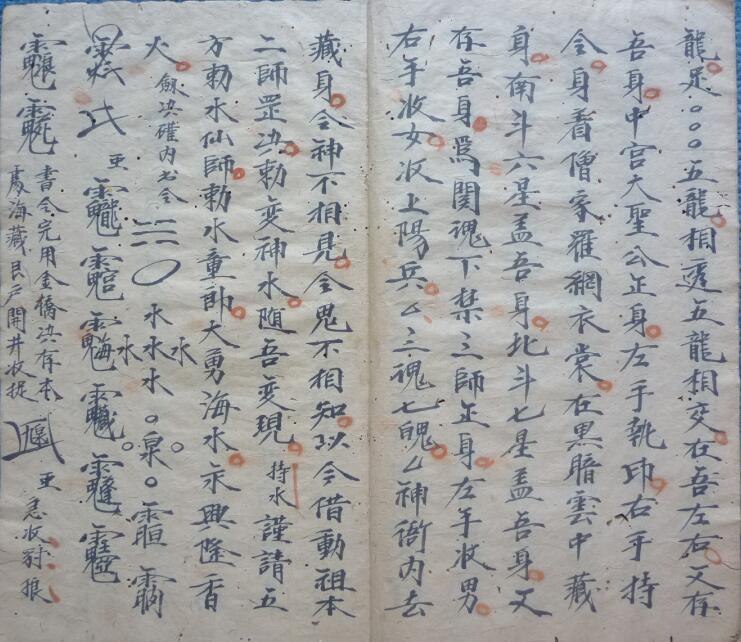 龍足。。。五龍相透五龍相交在吾左右又存
吾身中宮大聖公正身左手執印右手持
令身着僧家羅網衣裳在黑暗雲中藏
身南斗六星盖吾身北斗七星盖吾身又
存吾身為閭魂下禁三師正身左手收男
右手收女收上陽兵厶三魂七魄厶神衙内去
藏身令神不相見令鬼不相知以今借動祖本
二師罡决勅变神水随吾变現 持水 謹請五
方勅水仙師勅水童郎大勇海水永興隆香
火 劍决確内书令 水水水水水 泉
亚
書令完用金橋决存本
處海藏民戶開井收捉 亚 急收豺狼